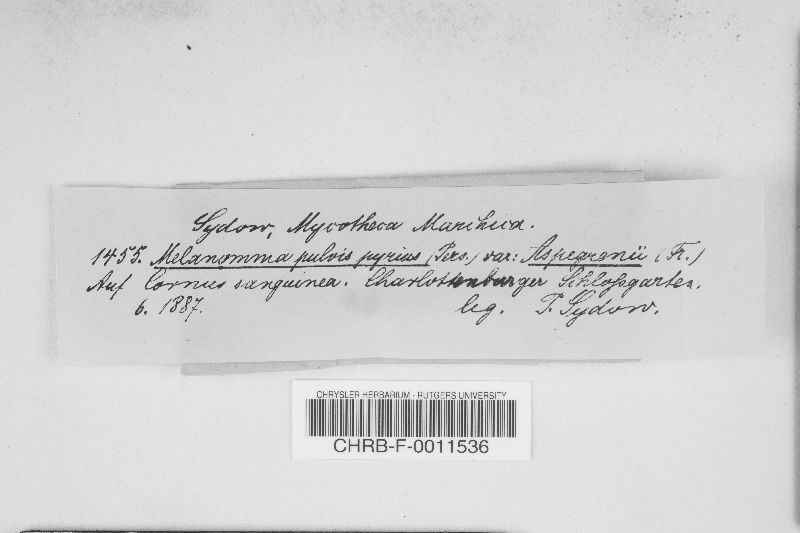 Sydow, Mycotheca Marchica.
1455. Melanomma pulvis pyrius (Pers.) var: Aspegrenii (Fr.)
Auf Cornus sanguinea. Charlottenburger Schloßgarten.
6. 1887. leg. P. Sydow.
CHRYSLER HERBARIUM - RUTGERS UNIVERSITY
CHRB-F-0011536